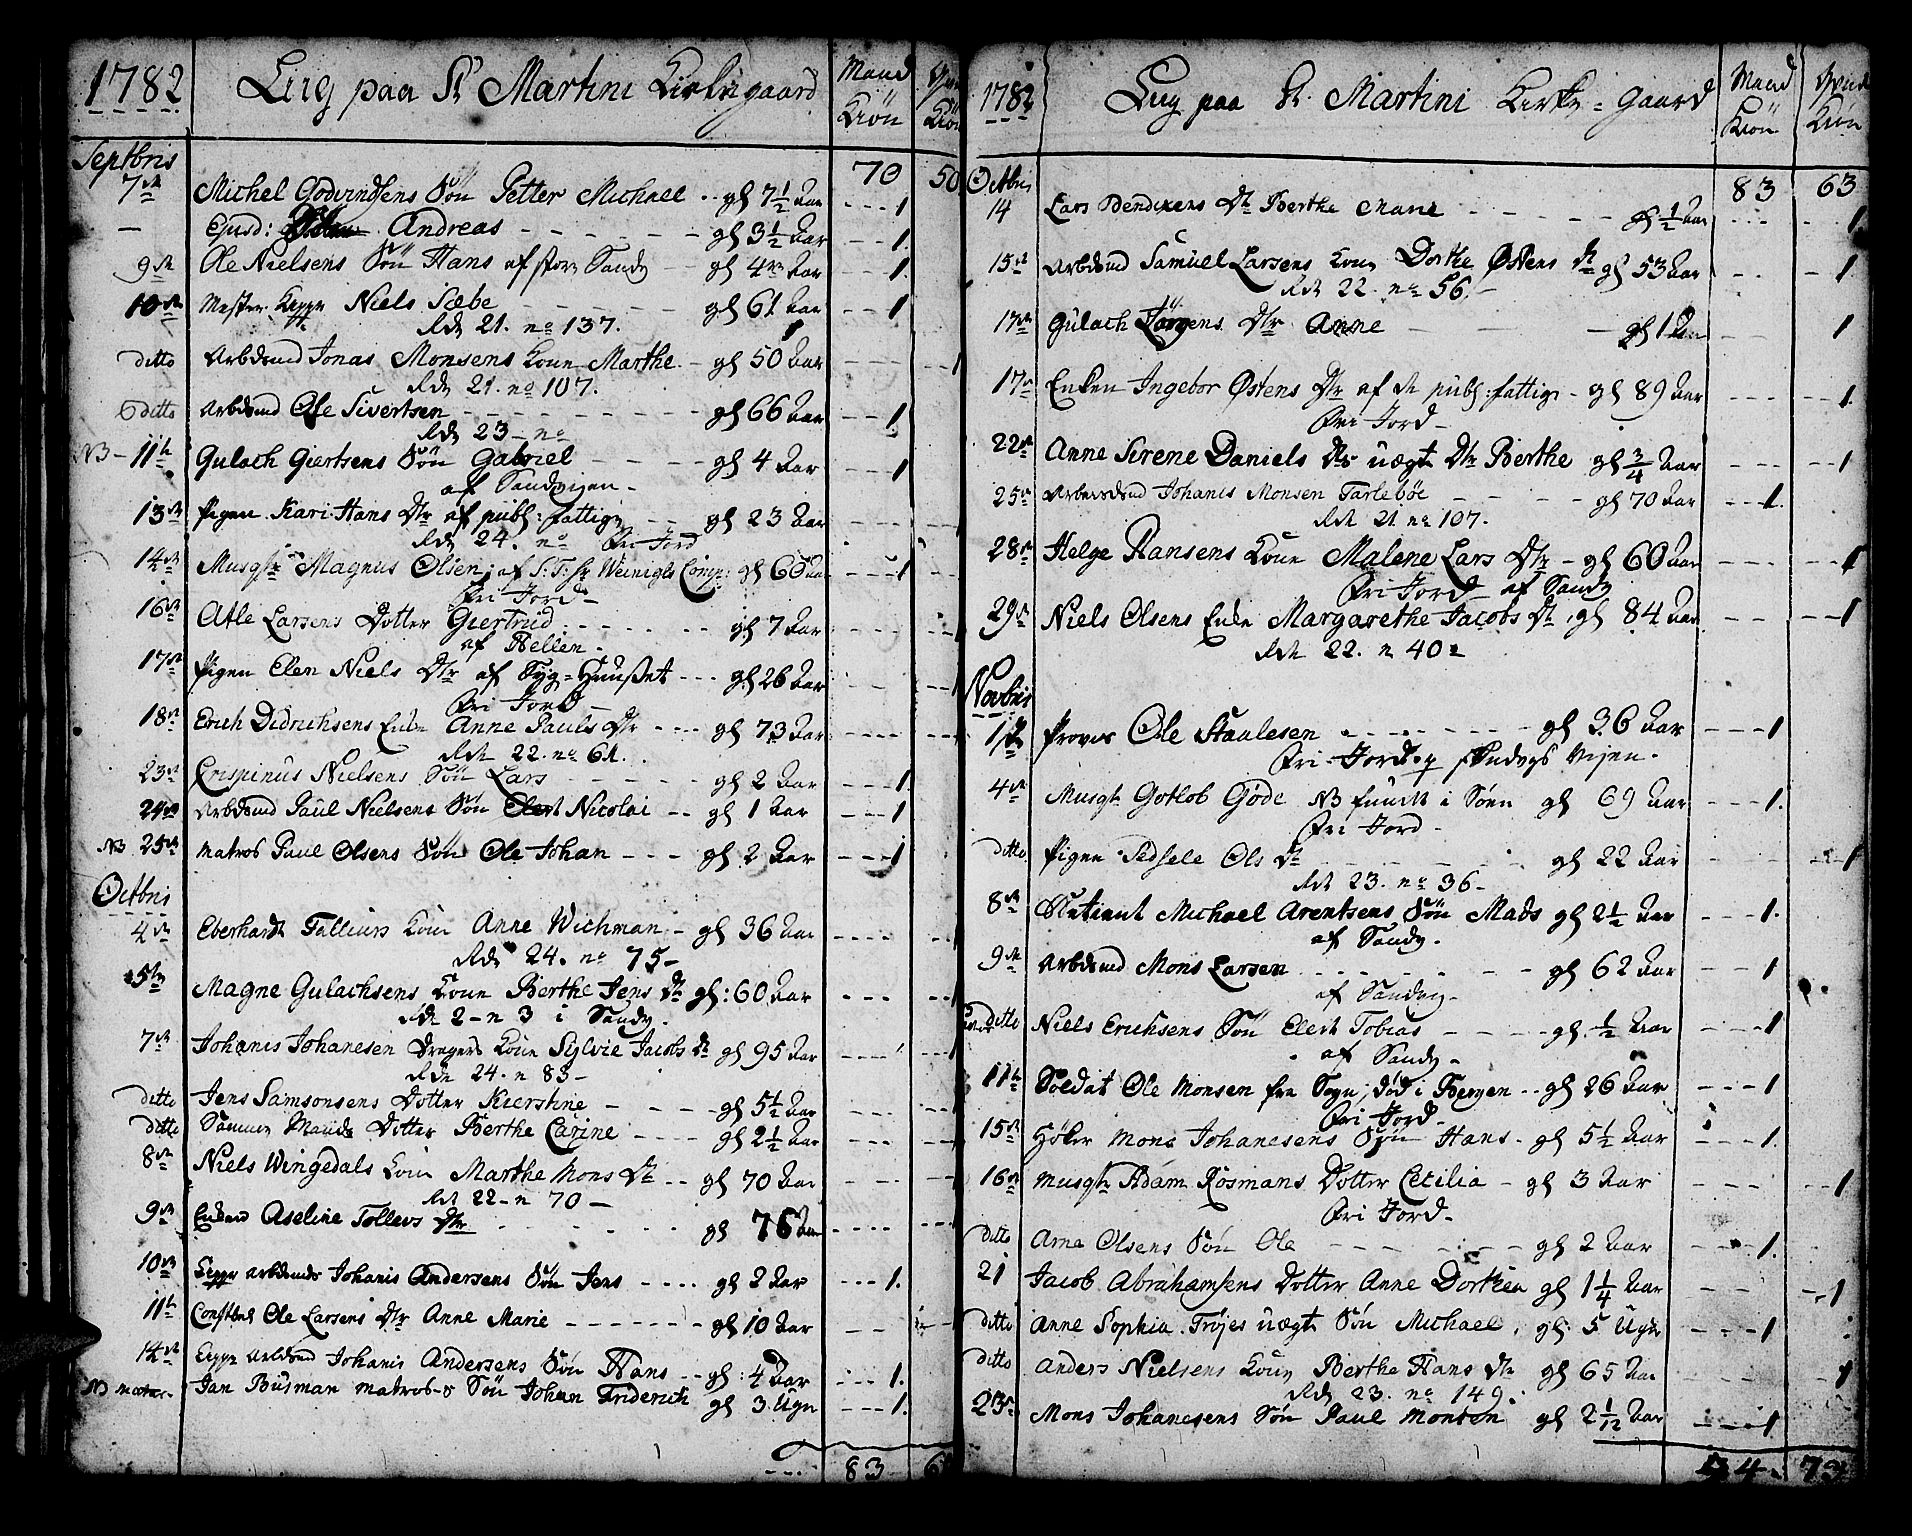 1782 Liig paa St Martini Kirkegaard Mand Kiön Kiön
Septbris 70 50
7de Michel Godvindsens Sön Petter Michael gl 7½ Aar 1
Ejusd: Andreas gl 3½ Aar 1
9de Ole Nielsens Sön Hans af store Sandv gl 4re Aar 1
10de Mester Niels Sæbe gl 61 Aar 1
Rde 21. no 137.
ditto Arbdsmd Jonas Monsens Kone Marthe gl 50 Aar 1
Rde 21. no 107.
ditto Arbdsmd Ole Sivertsen gl 66 Aar 1
Rde 23 no
NB 11te Gulach Giertsens Sön Gabriel gl 4 Aar 1
af Sandvigen
13de Pigen Kari Hans Dtr af publ: fattige gl 23 Aar
Rde 24. no Fri Jord
14de Musqtr Magnus Olsen, af S: T: Hr Comp: gl 66 Aar 1
Fri Jord
16de Atle Larsens Dotter Giertrud gl 7 Aar 1
af Hellen
17de Pigen Elen Niels Dtr af Syg=Huuset gl 26 Aar 1
Fri Jord
18de Erich Didrichsens Enke Anne Pauls Dtr gl 73 Aar 1
Rde 22. no 61.
23de Crispinus Nielsens Sön Lars gl 2 Aar 1
24de Arbdsmd Paul Nielsens Sön Nicolai gl 1 Aar 1
NB 25de Matros Paul Olsens Sön Ole Johan gl 2 Aar 1
Octbris
4de Eberhardt Kone Anne Wichman gl 36 Aar
Rde 24. no 75
5te Magne Gulachsens Kone Berthe Jens Dtr gl: 60 Aar 1
Rde 2 n 3 i Sandv.
7de Johanis Johanesen Dragers Kone Sylvie Jacobs Dtr gl 95 Aar 1
Rde 24. n 83
ditto Jens Samsonsens Dotter Kierstine gl 5½ Aar 1
ditto Dotter Berthe Carine gl 2½ Aar
8de Niels Wingedals Kone Marthe Mons Dtr gl 70 Aar 1
Rde 22 n 70
9de Enken Aseline Tollevs Dtr gl 76 Aar 1
10de Arbdsmds Johanis Andersens Sön Jens gl 2 Aar 1.
11te Constbel Ole Larsens Dtr Anne Marie gl 10 Aar 1
14de Arbdsmd Johanis Andersens Sön Hans gl: 4 Aar 1.
NB Jan Busman matros Sön Johan Friderich gl 3 Ugr 1.
83
1782 Liig paa St. Martini Kirke=gaard Mand Kiön Kiön
Octbris 83 63
14 Lars Bendixens Dtr Berthe Marie gl ½ Aar 1.
15de Arbdsmd Samuel Larsens Kone Dorthe Østens Dtr gl 53 Aar 1
Rde 22. no 56.
17de Gulach Jörgens Dtr Anne gl 1 Aar 1
17de Enken Ingebor Østens Dtr af de publ: fattige gl 89 Aar 1.
Fri Jord
22de Anne Sirene Daniels Dtr uægte Dtr Berthe gl ¾ Aar 1
25de Johanis Monsen Tarlebøe gl 70 Aar 1.
Rde 21 no 107.
28de Helge Hansens Kone Malene Lars Dtr gl 60 Aar 1
Fri Jord af Sandv
29de Niels Olsens Enke Margarethe Jacobs Dtr gl 84 Aar 1
Rde 22. n 40
Novbris
1te Ole Staalesen gl 36 Aar 1
Fri Jord
4de Musqtr Gotlob Göde NB funden i Söen gl 69 Aar 1.
Fri Jord
ditto Pigen Sedsele Ols Dtr gl 22 Aar 1
Rde 23. no 36
8de Michael Arentsens Sön Mads gl 2½ Aar 1.
af Sandv.
9de Arbdsmd Mons Larsen gl 62 Aar 1
af Sandv
ditto Niels Erichsens Sön Elert Tobias gl ½ Aar 1
af Sandv
11te Soldat Ole Monsen fra Sogn, död i Bergen gl 26 Aar 1
Fri Jord
15de Höker Mons Johanesens Sön Hans gl 5½ Aar 1.
16de Musqtr Adam Rosmans Dotter Cecilia gl 3 Aar 1
Fri Jord
ditto Arne Olsens Sön Ole gl 2 Aar 1.
21 Jacob Abrahamsens Dotter Anne Dorthea gl 1¼ Aar 1
ditto Anne Sophia Tröjes uægte Sön Michael gl: 5 Ugr 1
ditto Anders Nielsens Kone Berthe Hans Dtr gl 65 Aar 1
Rde 23. no 149.
23de Mons Johanesens Sön Paul Monsen gl 2 1/12 Aar 1